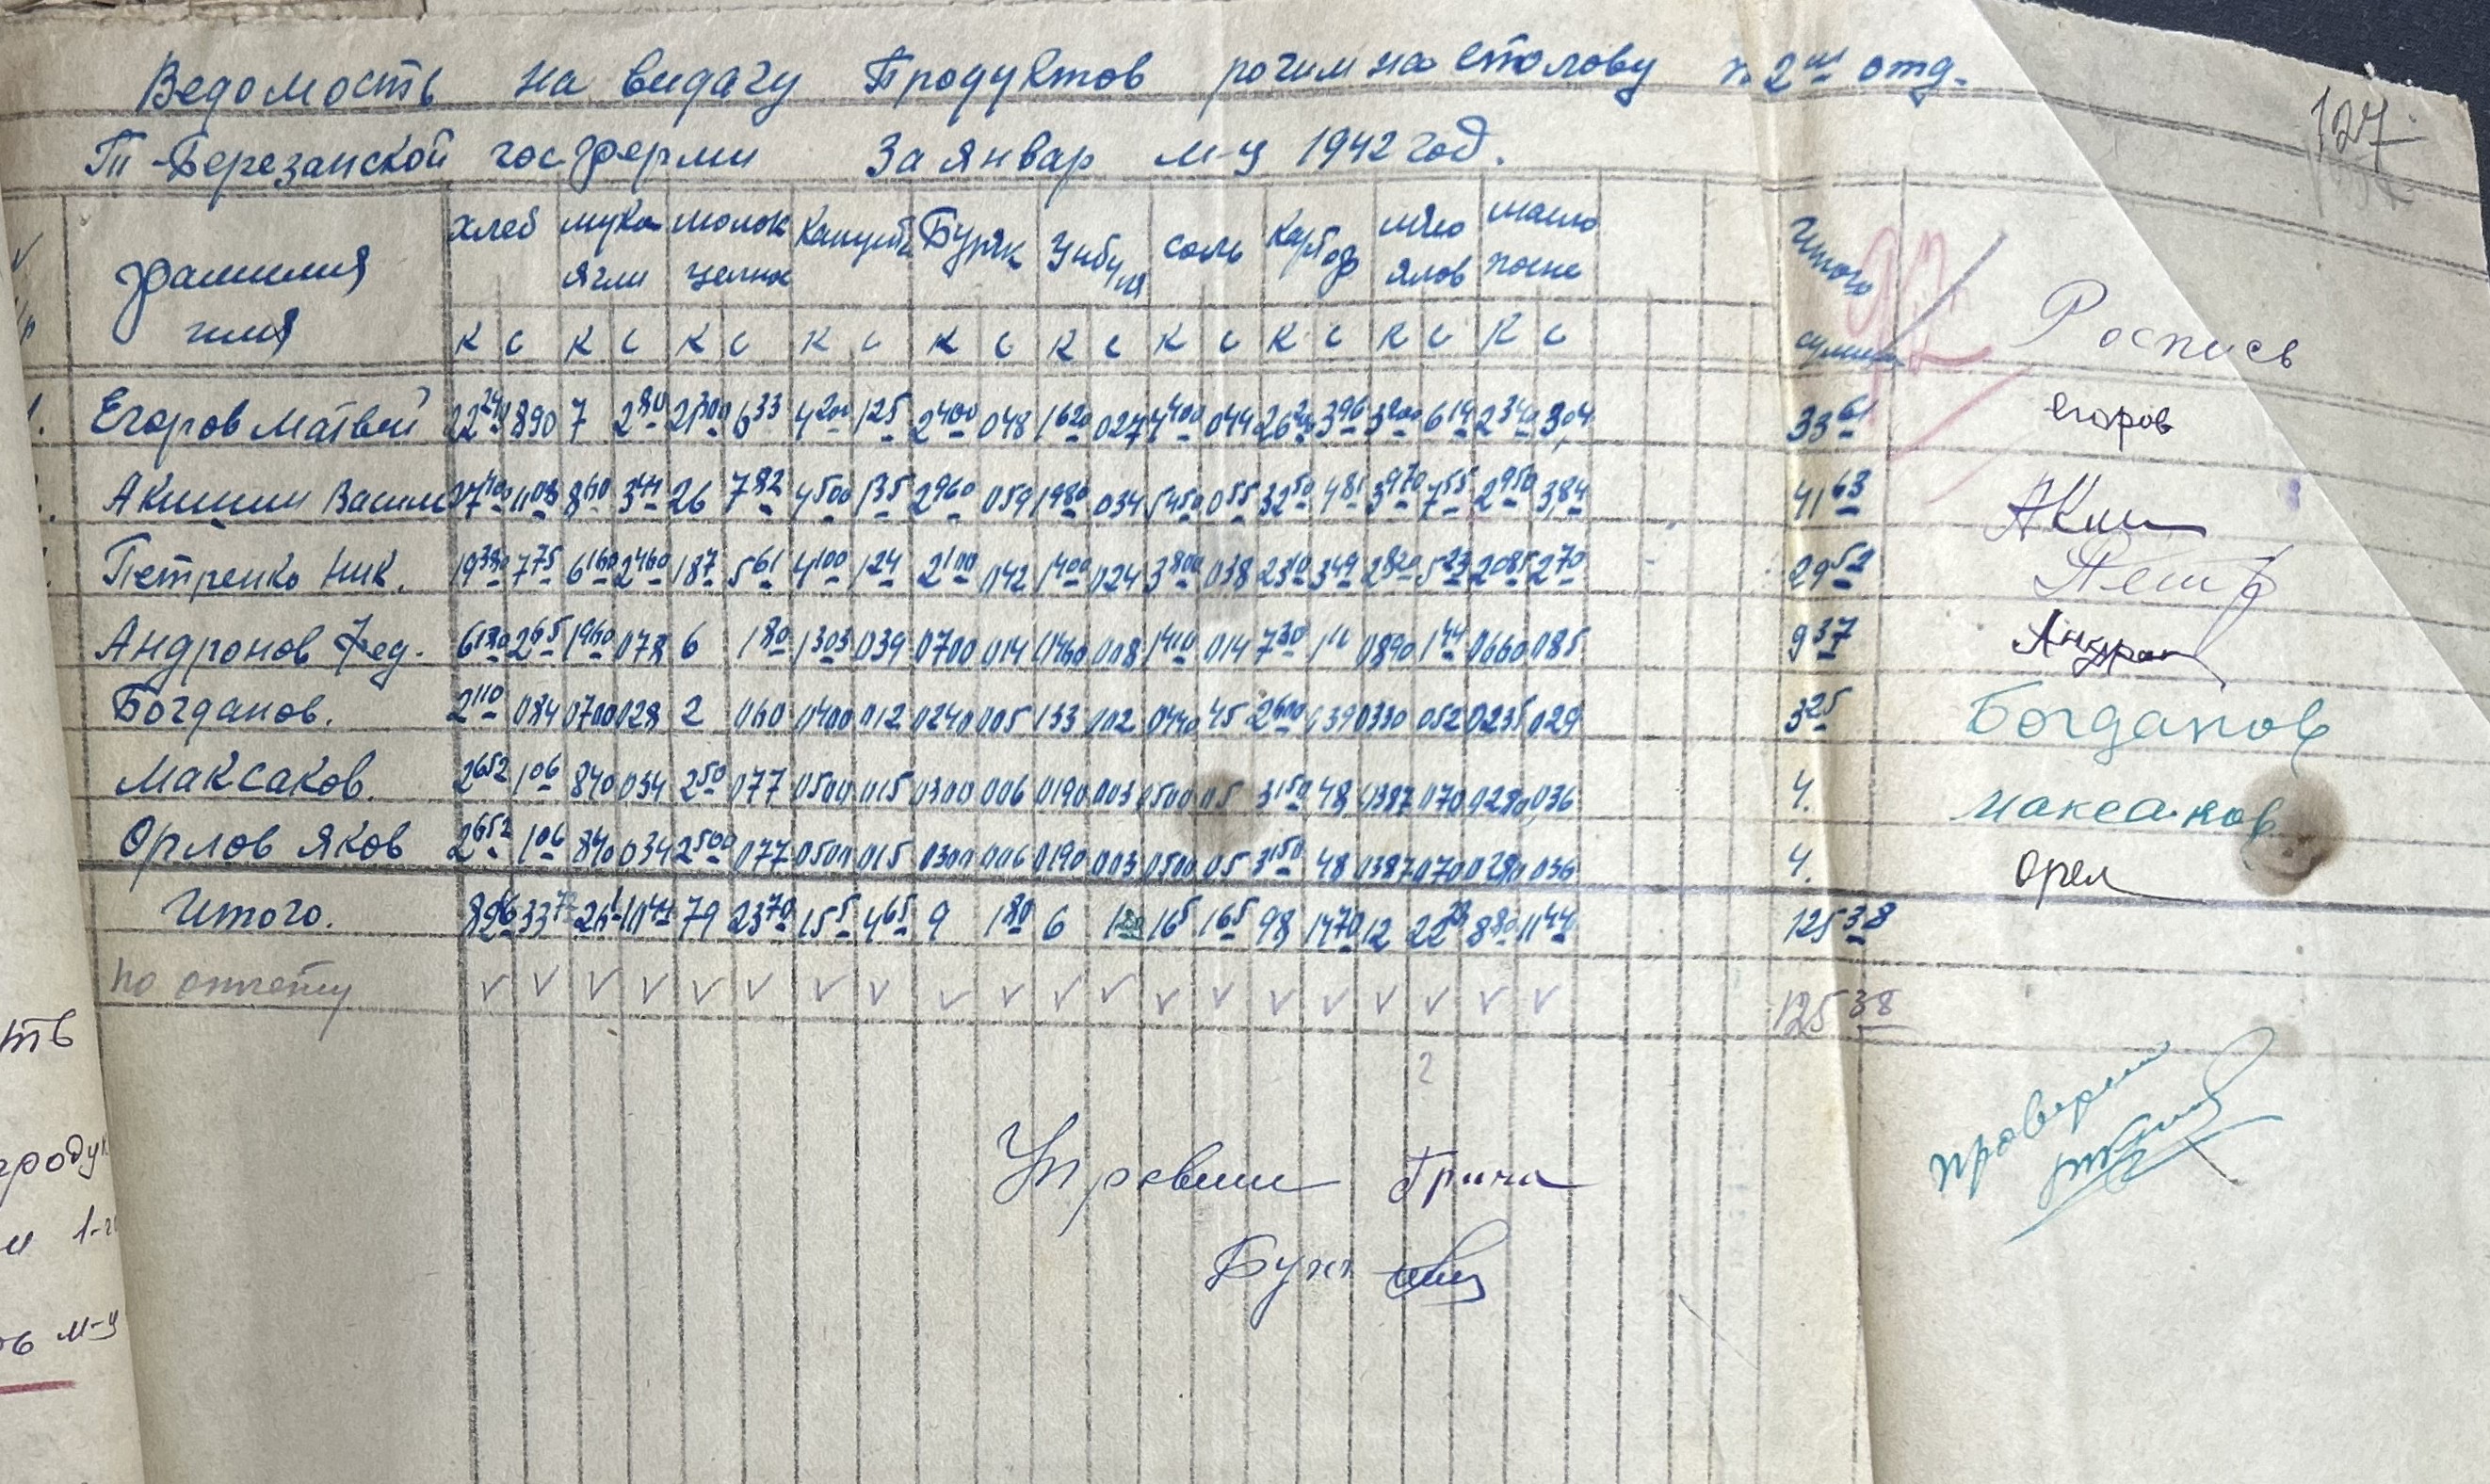 Ведомость на видачу Продуктов рочим на столову п. 2ой отд.
Т-Березанской госферми За январ м-ц 1942 год.
127
фамилия имя хлеб мука ягли молок цельн Капуста Буряк Цибуля соль Картоф мясо ялов масло посне Итого сумма Роспись
К С К С К С К С К С К С К С К С К С К С
1. Егоров Матвей 22 240 8 90 7 2 80 21 300 6 33 4 200 1 25 2 400 048 1 620 027 4 400 044 26 20 3 96 3 200 6 14 2 340 3,04 33 61 егоров
Акишин Васил 27 700 11 08 8 610 3 44 26 7 82 4 500 1 35 2 960 059 1 980 034 5 450 055 32 50 4 81 3 970 7 55 2 950 3,84 41 63 АКиш
Петренко Ник. 19 380 7 75 6 160 2 460 18 7 5 61 4 100 1 24 2 100 042 1 400 024 3 800 038 23 10 3 49 2 820 5 23 2 085 2 70 29 52 Петр
Андронов Фед. 6 630 2 65 1 960 078 6 1 80 1 303 039 0700 014 0460 008 1 410 014 7 30 1 11 0890 1 44 0660 085 9 37 Андрон
Богданов. 2 110 084 0700 028 2 060 0400 012 0240 005 133 002 0440 45 2 600 039 0330 052 0235 029 3 25 Богданов
Максаков. 2 652 1 06 840 034 2 50 077 0500 015 0300 006 0190 003 0500 05 3 150 48 0387 070 0280 036 4. максаков
Орлов Яков 2 652 1 06 840 034 2 500 077 0500 015 0300 006 0190 003 0500 05 3 150 48 0387 070 0280 036 4. Орел
Итого. 33 7 79 23 70 15 5 4 65 9 1 80 6 16 5 1 65 98 14 70 12 8 80 11 44 125 38
по отчету v v v v v v v v v v v v v v v v v v v v 125 38
2
Управл Грича
Бухг
проверил
ть
продук
и 1-
ов м-ц